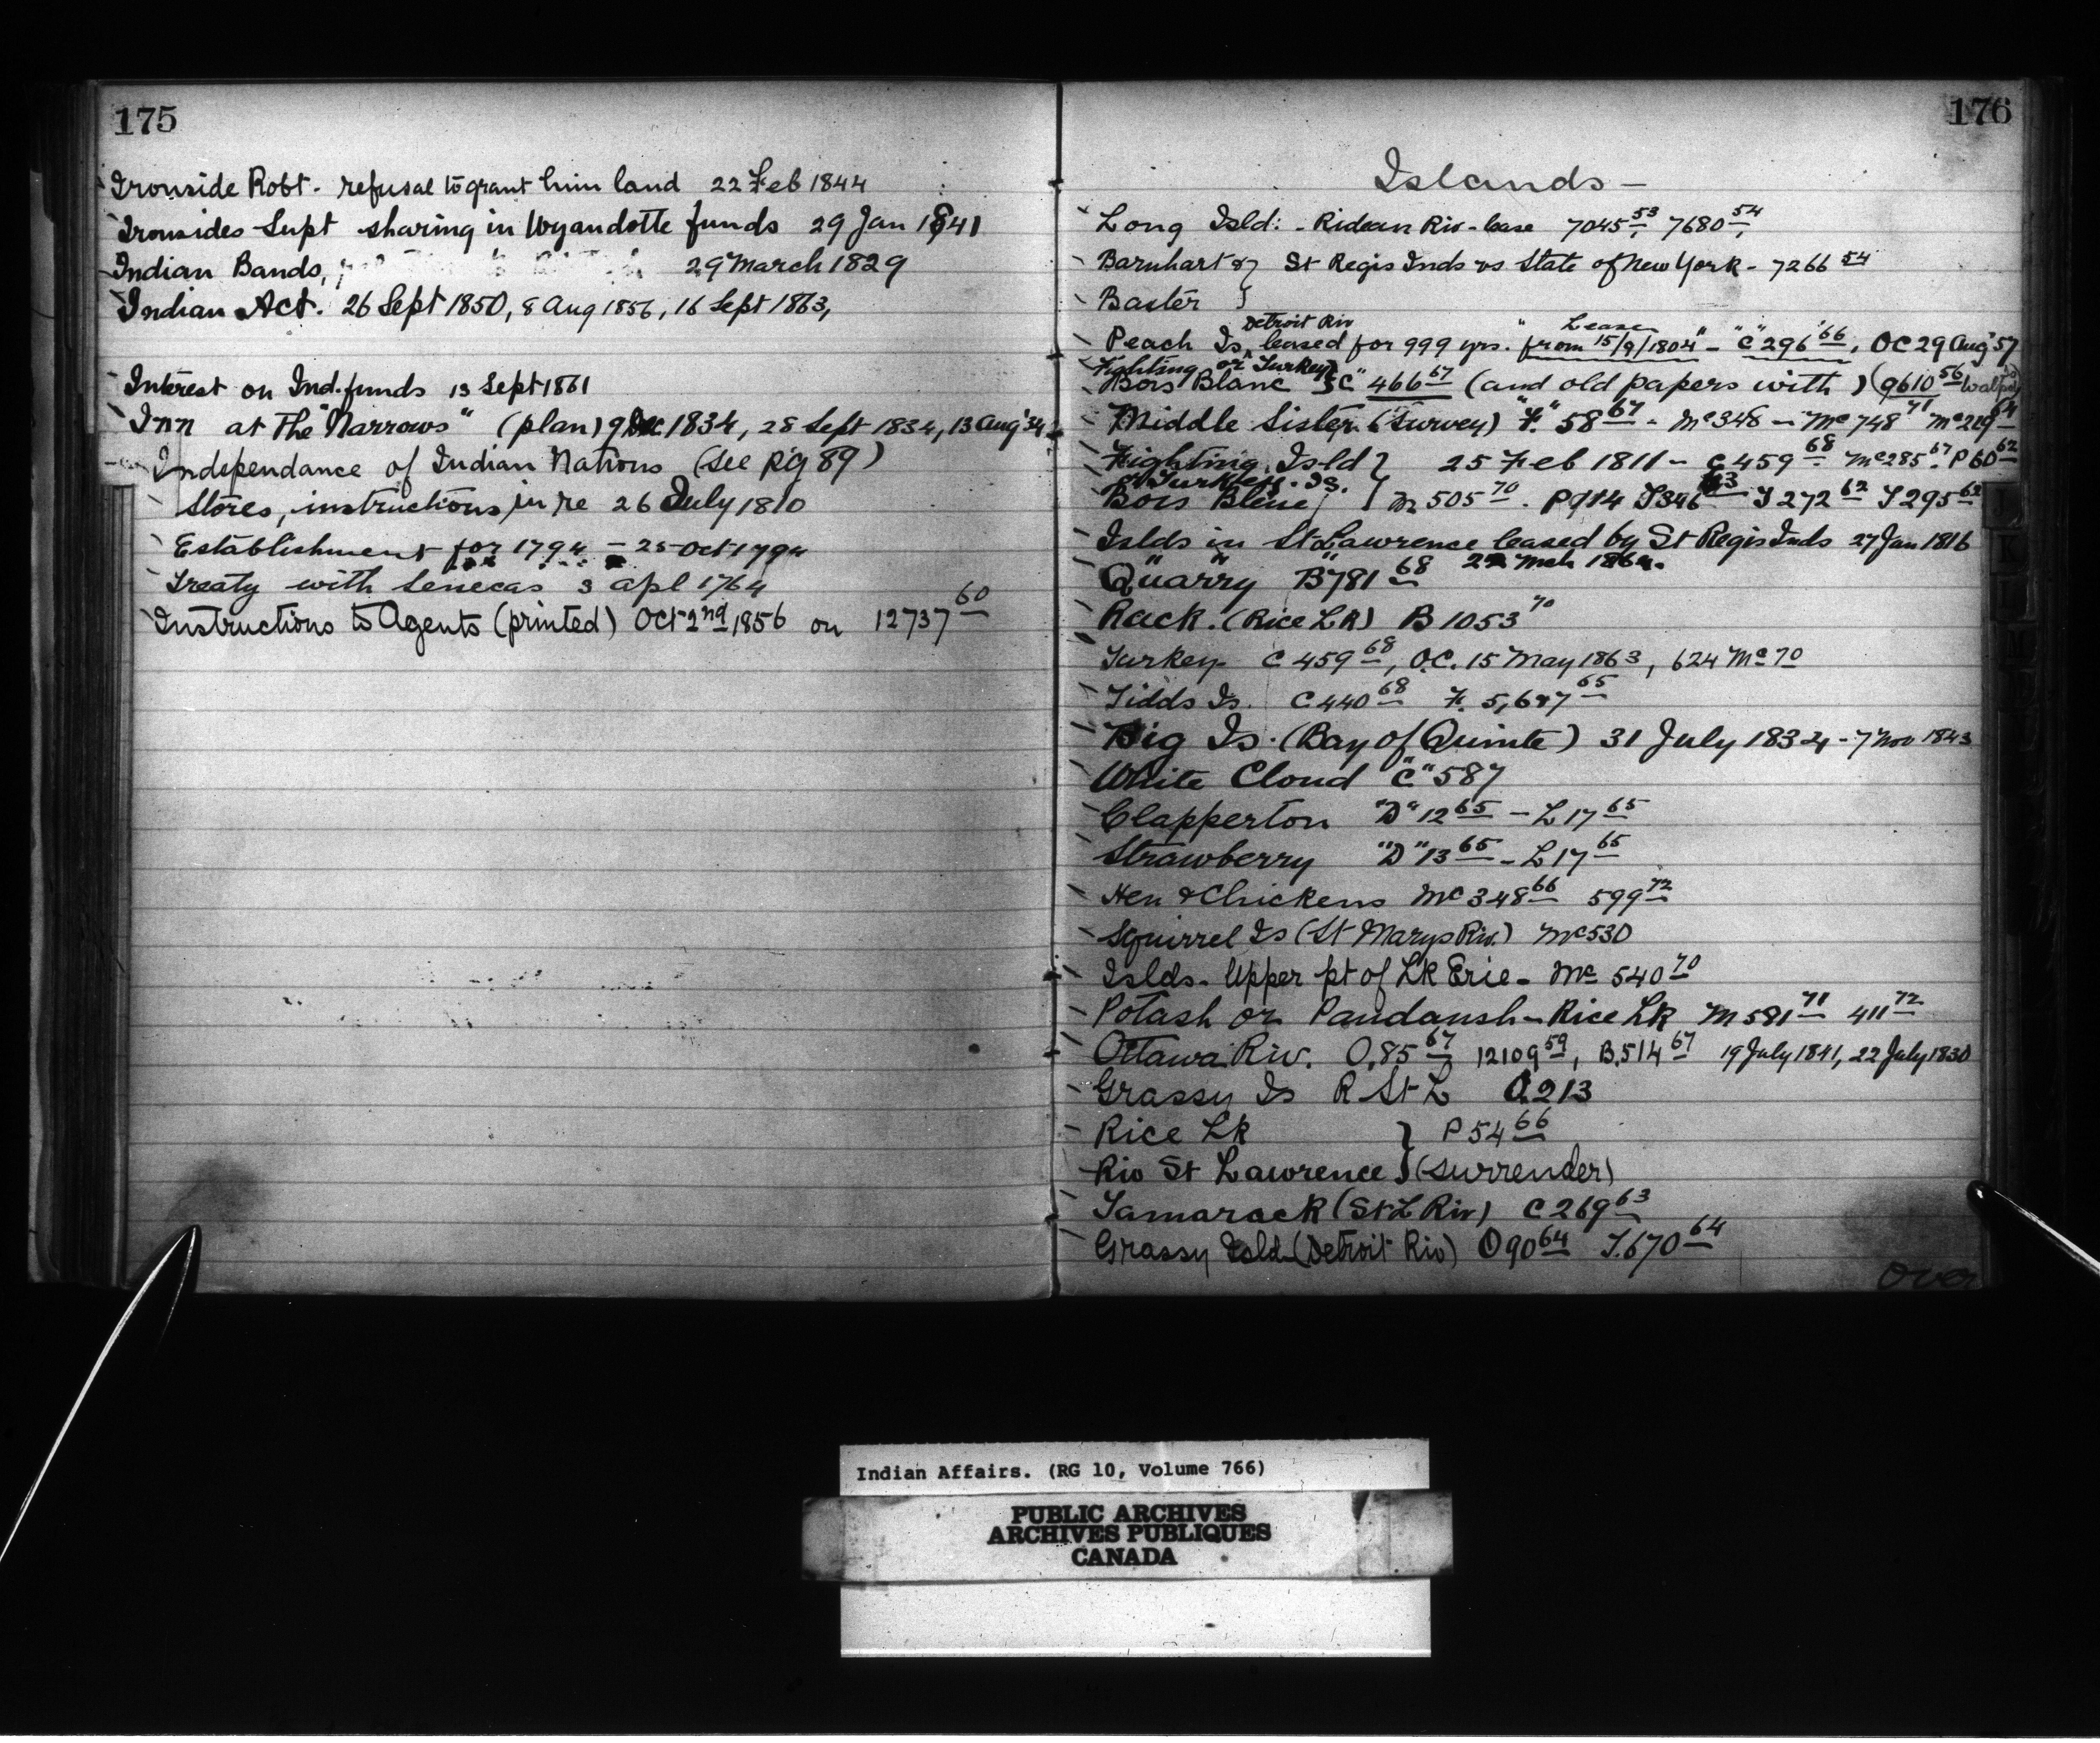 175
Ironside Robt. refusal to grant him land 22 Feb 1844
Ironsides Supt sharing in Wyandotte funds 29 Jan 1841
Indian Bands, 29 March 1829
Indian Act. 26 Sept 1850, 8 Aug 1856, 16 Sept 1863,
Interest on Ind. funds 13 Sept 1861
Inn at the "Narrows" (plan) 9 Dec 1834, 28 Sept 1834, 13 Aug '34
Independance of Indian Nations (see Pg 89)
Stores, instructions in re 26 July 1810
Establishment for 1794 - 25 Oct 1794
Treaty with Senecas 3 apl 1764
Instructions to Agents (printed) Oct 2nd 1856 on 12737 60
176
Islands -
Long Isld: - Ridean Riv - lease 7045 53, 7680 54,
Barnhart & } St Regis Inds vs State of New York - 7266 54
Baxter }
Detroit Riv Lease
Peach Is, leased for 999 yrs. "from 15/9/1804" - "C" 296 66, OC 29 Aug '57
Fighting or Turkey
Bois Blanc } "C" 466 67 (and old papers with) (9610 56
Middle Sister (Survey) "F." 58 67 - Mc 348 - Mc 748 71 Mc 219
Fighting Isld } 25 Feb 1811 - C 459 68. Mc 285 67. P 60 62
Turkey. Is.
Bois Blanc } M 505 70. P 914 T 346 T 272 62 T 295 62
Islds in St Lawrence leased by St Regis Inds 27 Jan 1816
Quarry "B" 781 68 Mch 1864.
Rack. (Rice LK) B 1053 70
Turkey C 459 68, O.C. 15 May 1863, 624 Mc 70
Tidds Is. C 440 68 F. 5,647 65
Big Is. (Bay of Quinte) 31 July 1834 - 7 Nov 1843
White Cloud "C" 587
Clapperton "D" 12 65 - L 17 65
Strawberry "D" 13 65 - L 17 65
Hen & Chickens Mc 348 66 599 72
Squirrel Is (St Marys Riv.) Mc 530
Islds - Upper pt of Lk Erie - Mc 540 70
Potash or Paudaush - Rice Lk M 581 71 411 72
Ottawa Riv. O,85 67 12109 59, B,514 67 19 July 1841, 22 July 1830
Grassy Is R St L O.213
Rice Lk } P 54 66
Riv St Lawrence } (surrender)
Tamarack (St L Riv) C 269 63
Grassy Isld (Detroit Riv) O 90 64 T.670 64
over
Indian Affairs. (RG 10, Volume 766)
PUBLIC ARCHIVES
ARCHIVES PUBLIQUES
CANADA